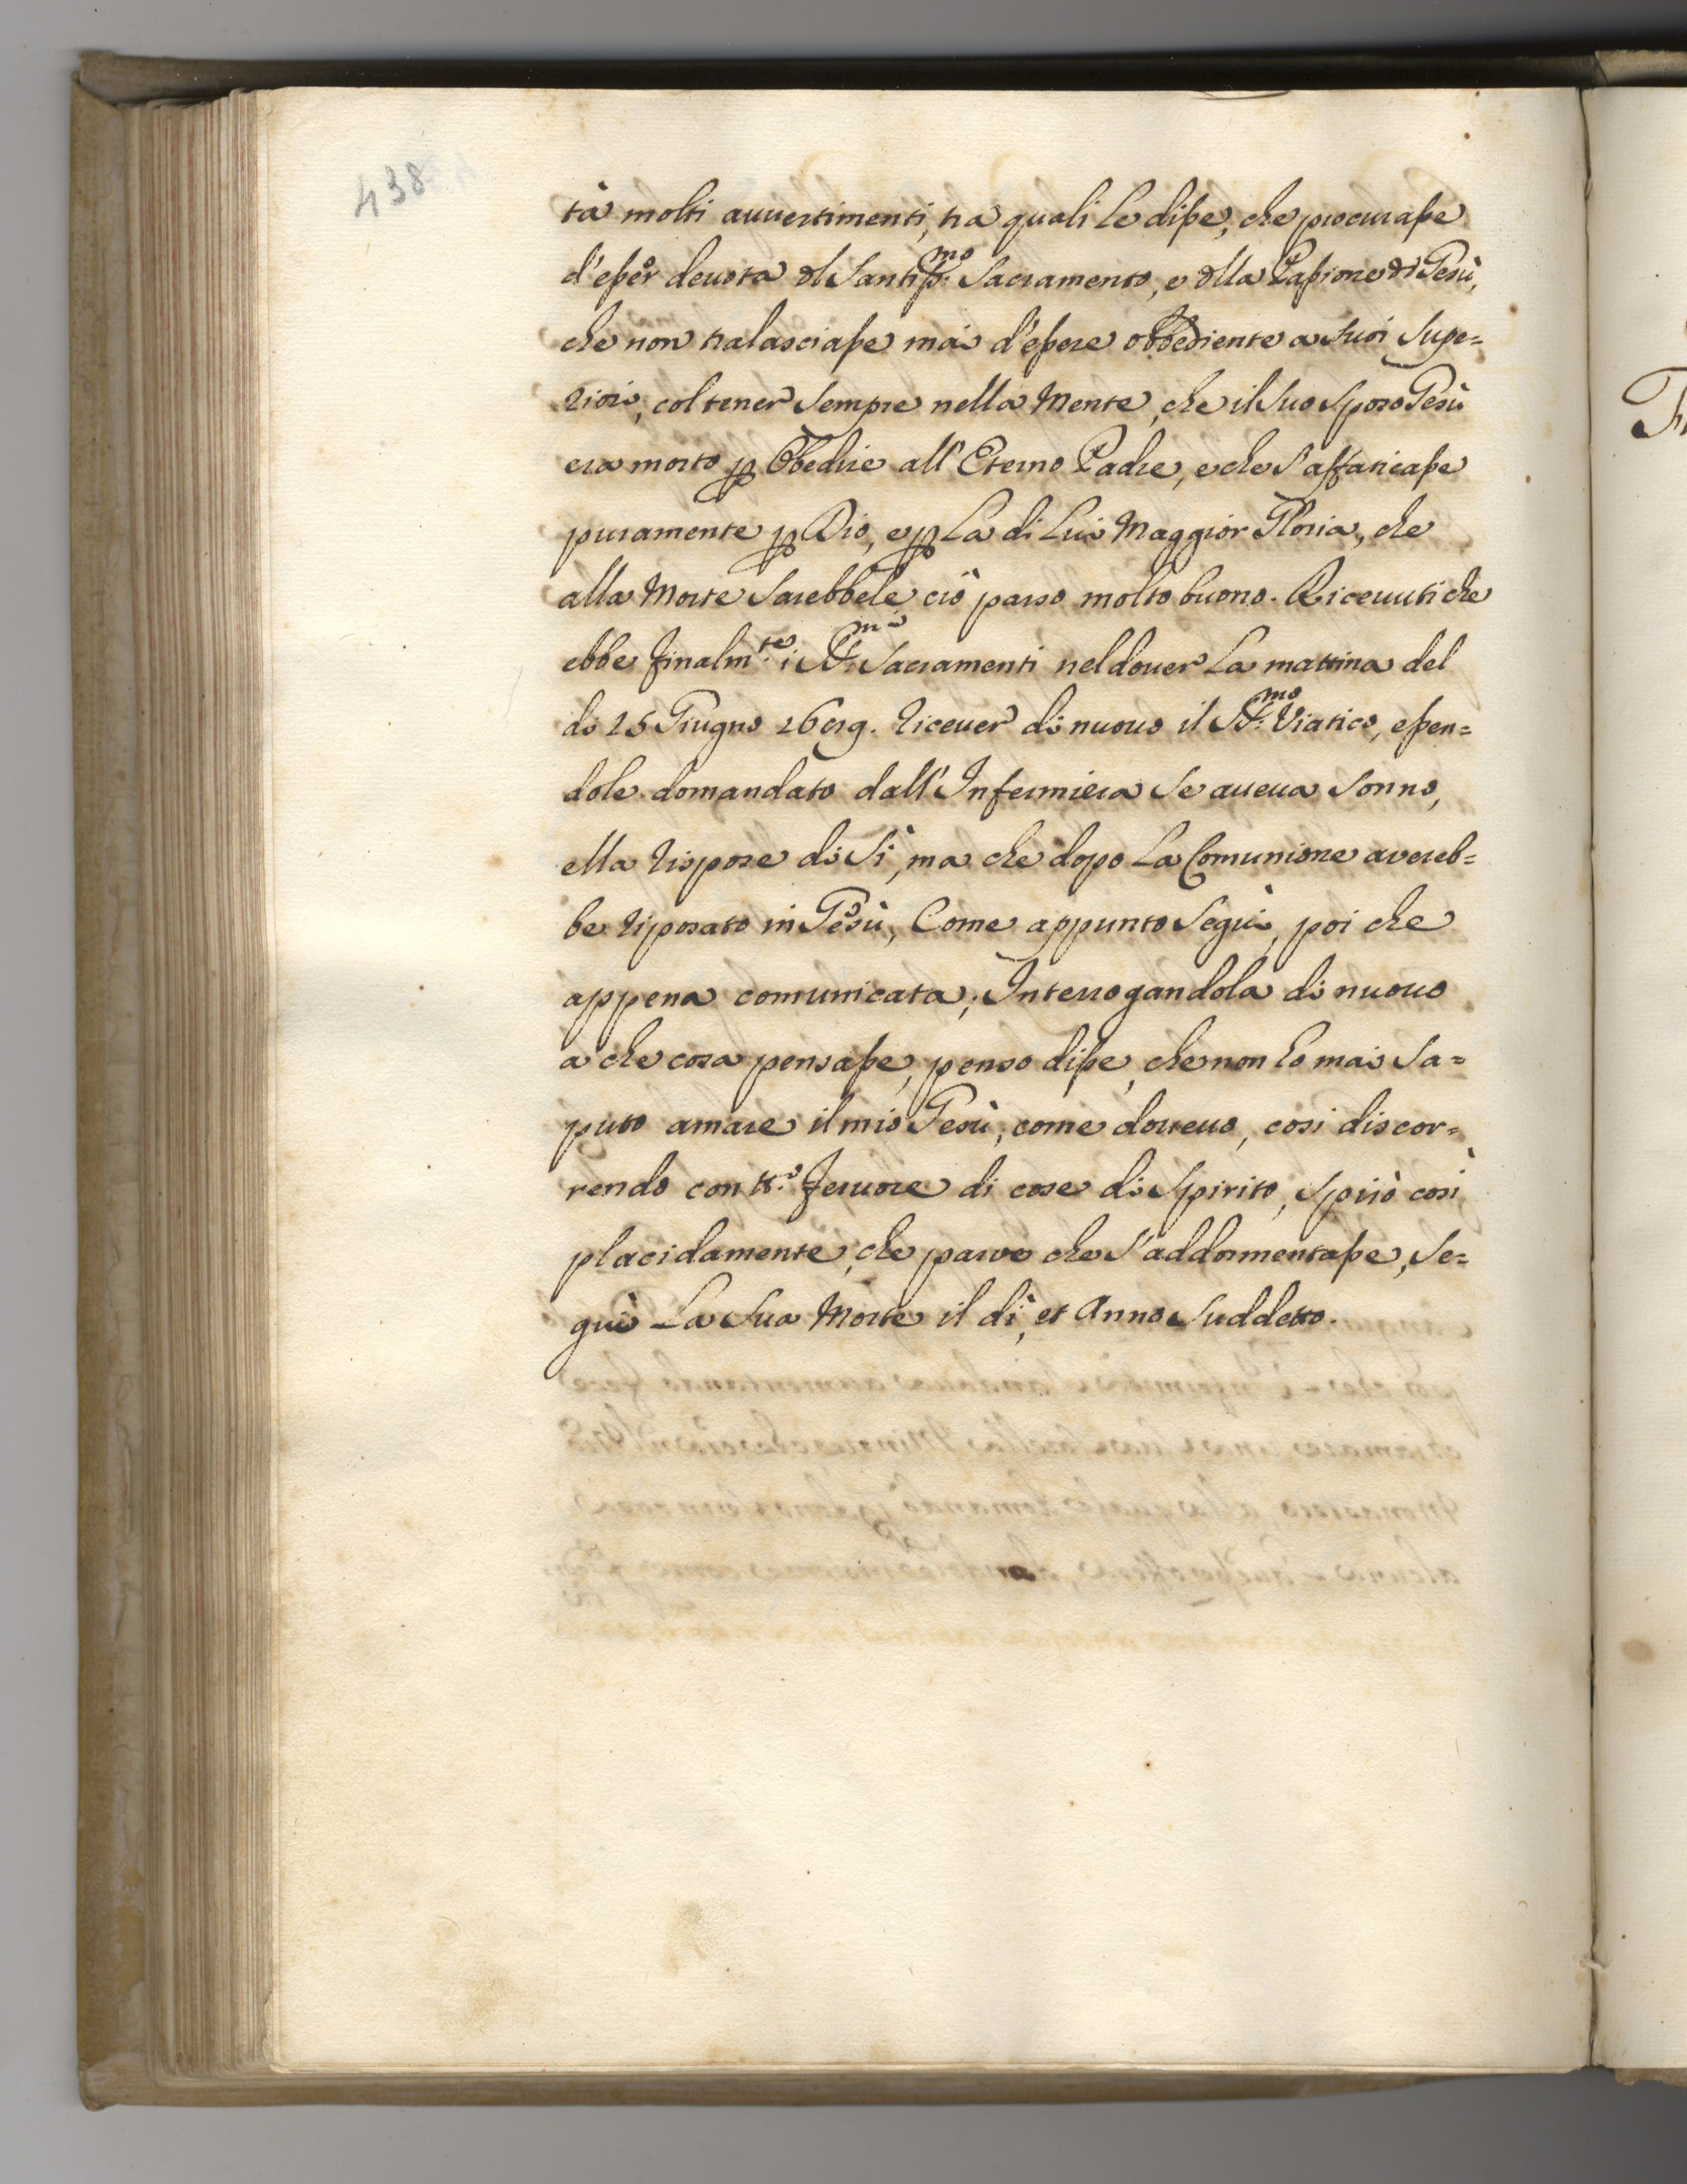 438
tà molti auuertimenti, tra quali le disse, che procurasse
d'esser deuota del Santiss:mo Sacramento, e della Passione di Gesù,
che non tralasciasse mai d'essere obbediente a suoi Supe=
riori, col tener sempre nella Mente, che il suo Sposo Gesù
era morto per Obedire all'Eterno Padre, e che s'affaticasse
puramente per Dio, e per la di Lui Maggior Gloria, che
alla Morte sarebbele ciò parso molto buono. Riceuuti che
ebbe finalm:te i SS:mi Sacramenti nel douer la mattina del
dì 25 Giugno riceuer di nuouo il SS:mo Viatico, essen=
dole domandato dall'Infermiera se aueua sonno,
ella rispose di Sì, ma che dopo la Comunione avereb=
be riposato in Gesù, Come appunto Seguì, poi che
appena comunicata, Interrogandola di nuouo
a che cosa pensasse, penso disse, che non ho mai Sa=
puto amare il mio Gesù, come doueuo, così discor=
rendo con tt:o feruore di cose di Spirito, Spirò così
placidamente, che parve che s'addormentasse, Se=
guì La Sua Morte il dì, et Anno Suddetto.